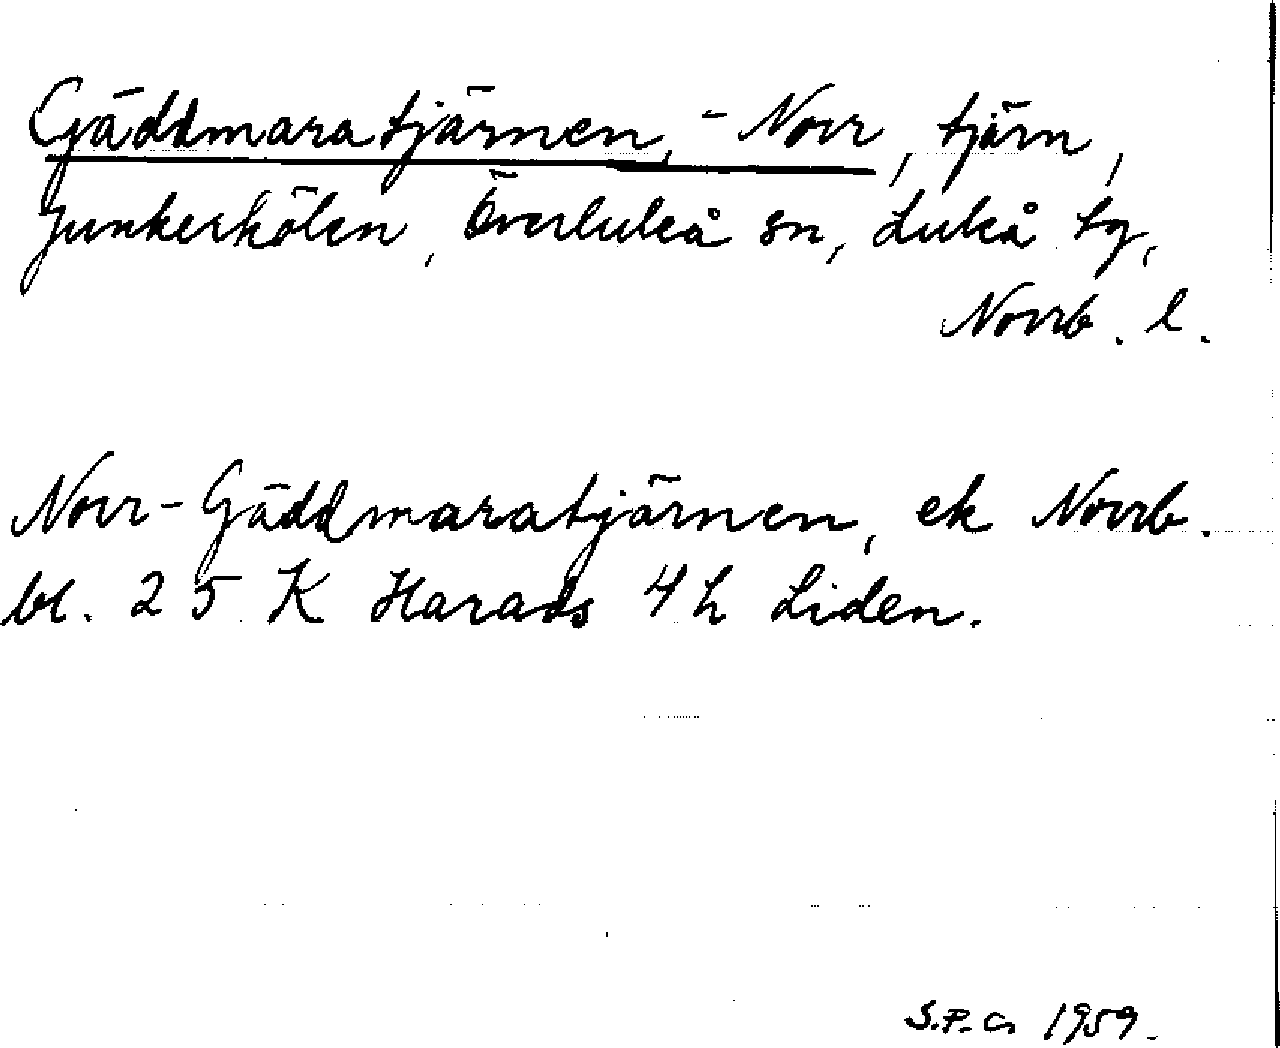 Gäddmaratjärnen, - Norr, tjärn,
Junkerhölen, Överluleå sn, Luleå tg,
Norrb. l.
Norr-Gäddmaratjärnen, ek Norrb.
bl. 25 K Harads 4 h Liden.
S.P.G. 1959.